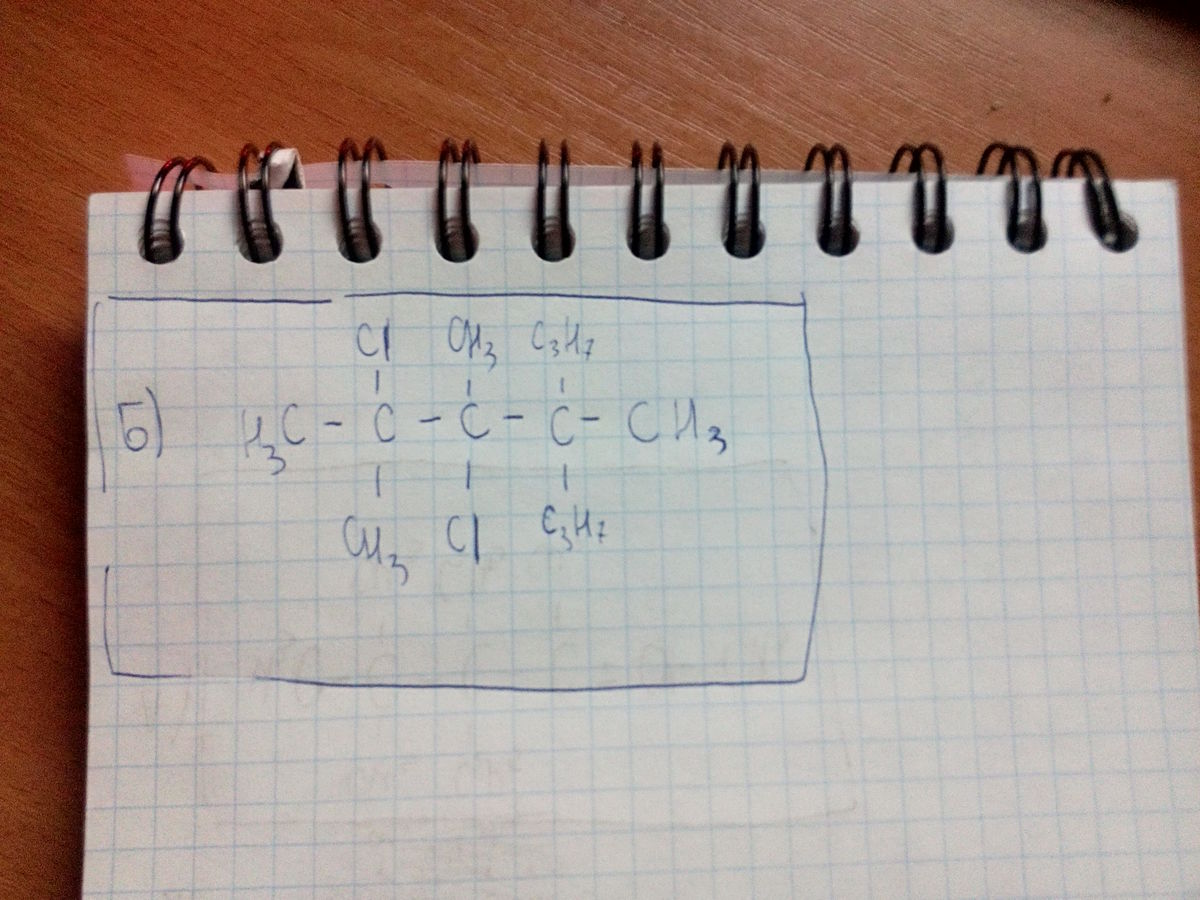 Cl CH₃ C₃H₇
Б) H₃C - C - C - C - CH₃
CH₃ Cl C₃H₇